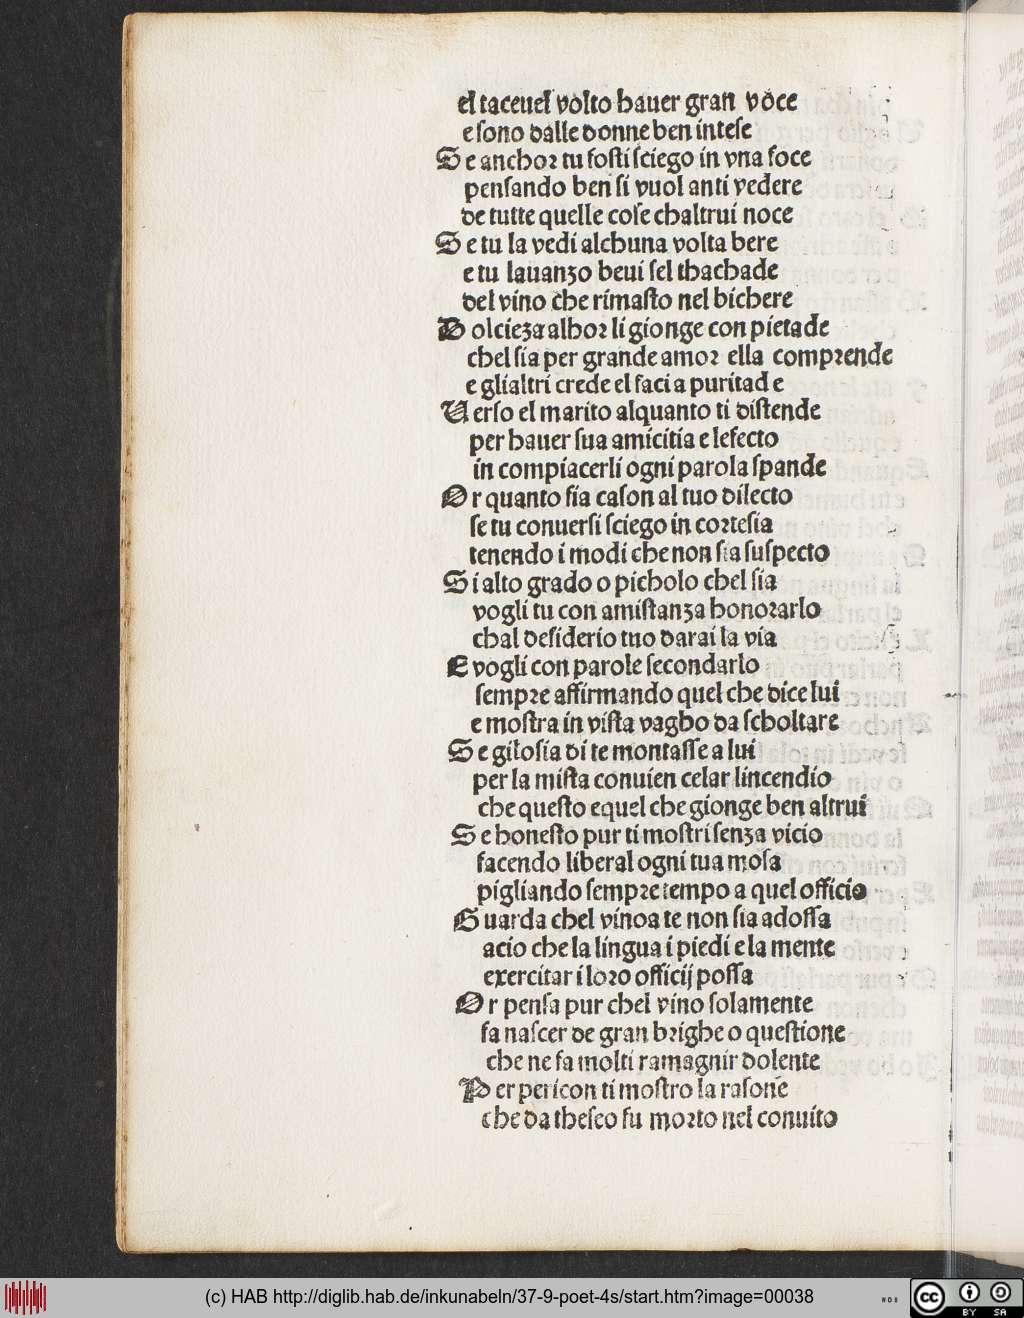 el taceuel volto hauer gran voce
e sono dalle donne ben intese
Se anchor tu fosti sciego in vna foce
pensando ben si vuol anti vedere
de tutte quelle cose chaltrui noce
Se tu la vedi alchuna volta bere
e tu lauanzo beui sel thachade
del vino che rimasto nel bichere
Dolcieza alhor li gionge con pietade
chel sia per grande amor ella comprende
e glialtri crede el faci a puritade
Verso el marito alquanto ti distende
per hauer sua amicitia e lefecto
in compiacerli ogni parola spande
Or quanto fia cason al tuo dilecto
se tu conuersi sciego in cortesia
tenendo i modi che non sia suspecto
Si alto grado o picholo chel sia
vogli tu con amistanza honorarlo
chal desiderio tuo darai la via
E vogli con parole secondarlo
sempre affirmando quel che dice lui
e mostra in vista vagho da scholtare
Se gilosia di te montasse a lui
per la mista conuien celar lincendio
che questo e quel che gionge ben altrui
Se honesto pur ti mostri senza vicio
facendo liberal ogni tua mosa
pigliando sempre tempo a quel officio
Guarda chel vino a te non sia adossa
acio che la lingua i piedi e la mente
exercitar i loro officij possa
Or pensa pur chel vino solamente
fa nascer de gran brighe o questione
che ne fa molti ramagnir dolente
Per pericon ti mostro la rasone
che da theseo fu morto nel conuito
(c) HAB http://diglib.hab.de/inkunabeln/37-9-poet-4s/start.htm?image=00038
cc BY SA